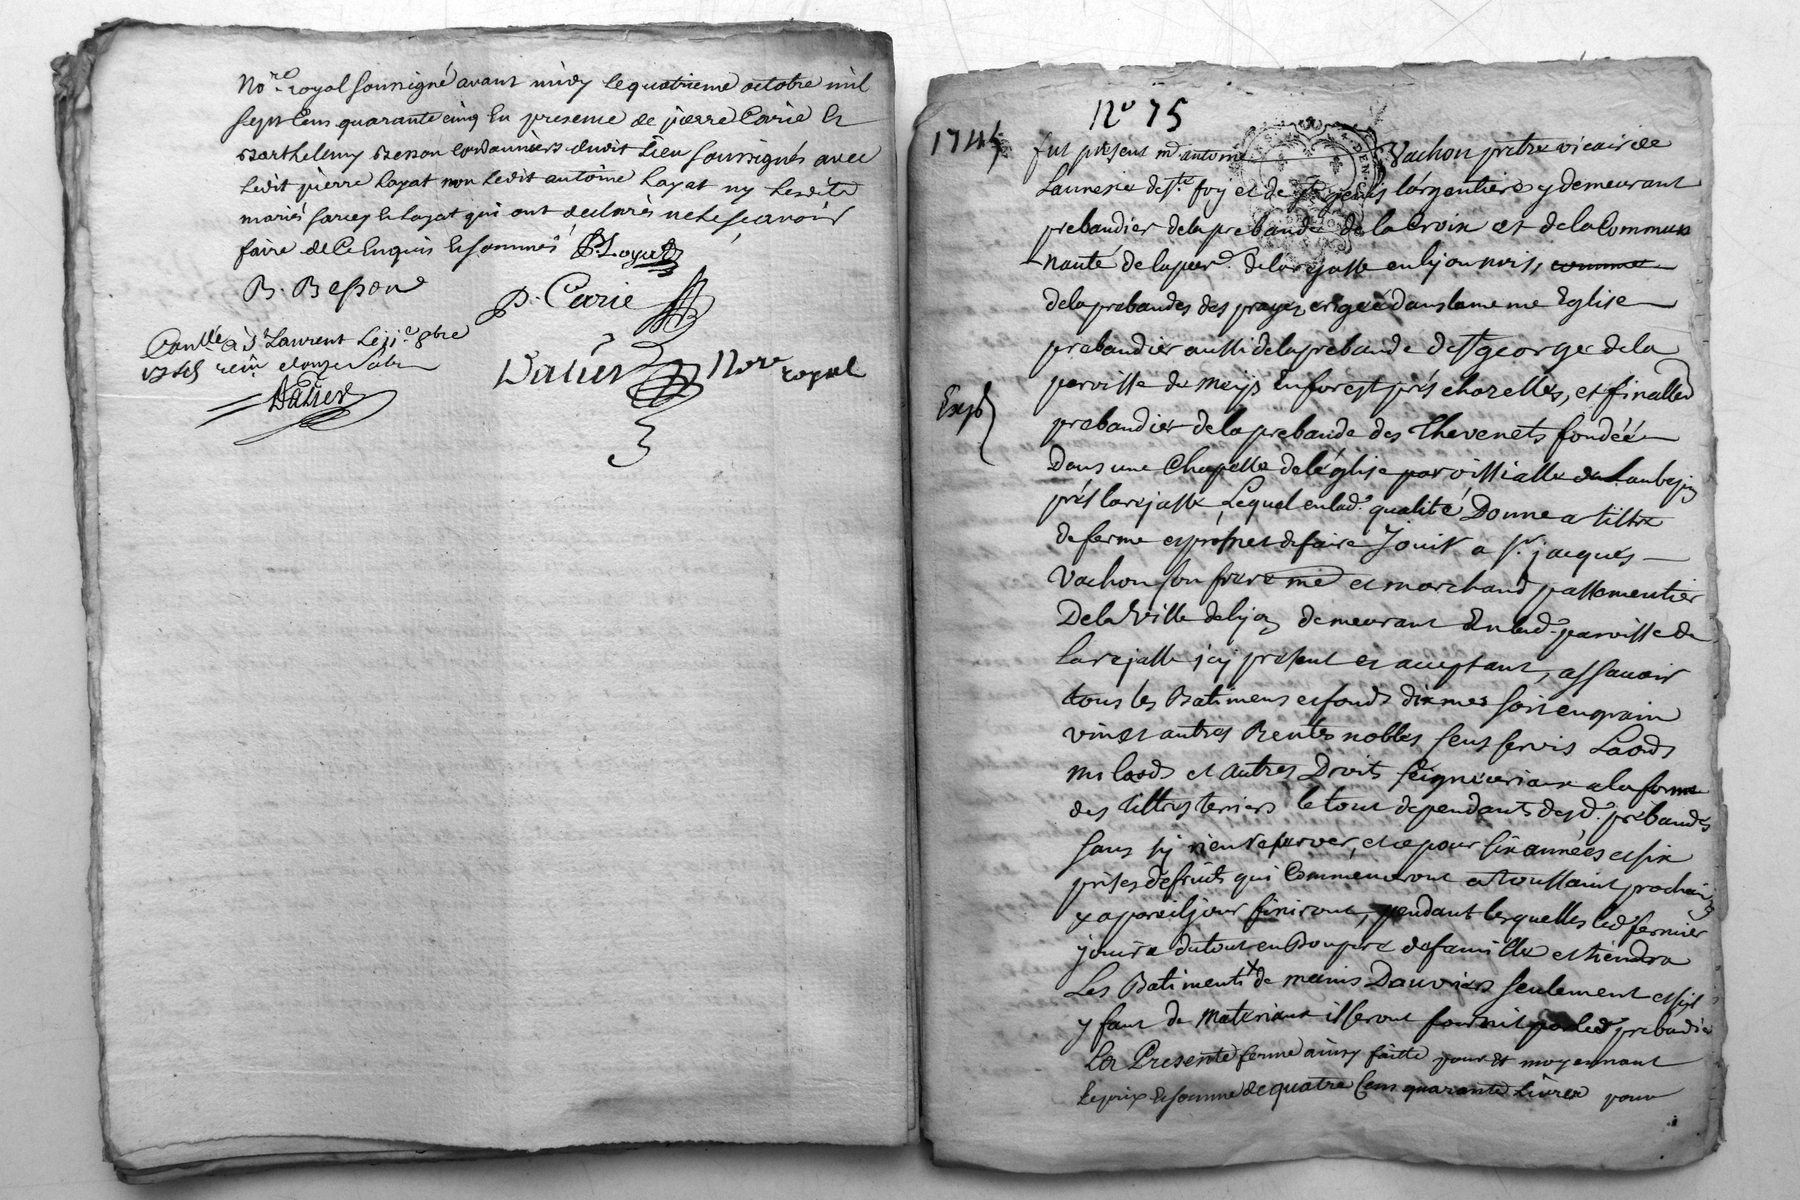 No.re royal soussigné avant midy le quatrieme octobre mil
sept cens quarante cinq en presence de pierre Carie et
Barthelemy Besson cordonniers dudit lieu soussignés avec
ledit pierre Loyat non ledit antoine Loyat ny lesdits
mariés et Loyat qui ont declarés ne le scavoir
faire de ce enquis et sommés P. Loyat
B. Besson
P. Carie
Conllé a St Laurent le 8bre
1745 reçu douze sols
Dalier
Dalier Nore
royal
No 75
1745
fut present me antoine Vachon pretre vicaire de
Launexe de Ste foy et de St genis l'argentiere y demeurant
prebandier de la prebande de la Croix et de la Commu
nauté de la par.e de larejasse en lyonnois,
de la prebandes des prayes erigée dans la meme Eglise
prebandier aussi de la prebande de St george de la
paroisse de meys en forest prés chazelles, et finallem
prebandier de la prebande des Thevenets fondéé
Exp.d
Dans une Chapelle de l'église paroissialle de Laubepin
prés larejasse, Lequel en lad.e qualité Donne a tiltre
de ferme et promet de faire Jouir a sr. jacques
Vachon son frere et marchand passementier
De la Ville de lyon demeurant En lad.e paroisse de
larejasse icy present et acceptant, assavoir
tous les Batimens et fonds dixmes soit en grain
vin et autres Rentes nobles sens servis Laods
mi laods et autres Droits seigneuriaux a la forme
des tiltres terriers le tout dependants desd. prebandes
sans sy rien reserver, et ce pour six années et six
prises de fruits qui Commenceront a toussaint prochain
et a pareil jour finiront, pendant lesquelles led. fermier
jouira du tout en Bon pere de famille et tiendra
Les Batiments de mains Douvriers seulement et sil
y faut de materiaux il seront fournit par led. prebandier
La Presente ferme ainsy faitte pour et moyennant
le prix et somme de quatre Cens quarante livres pour